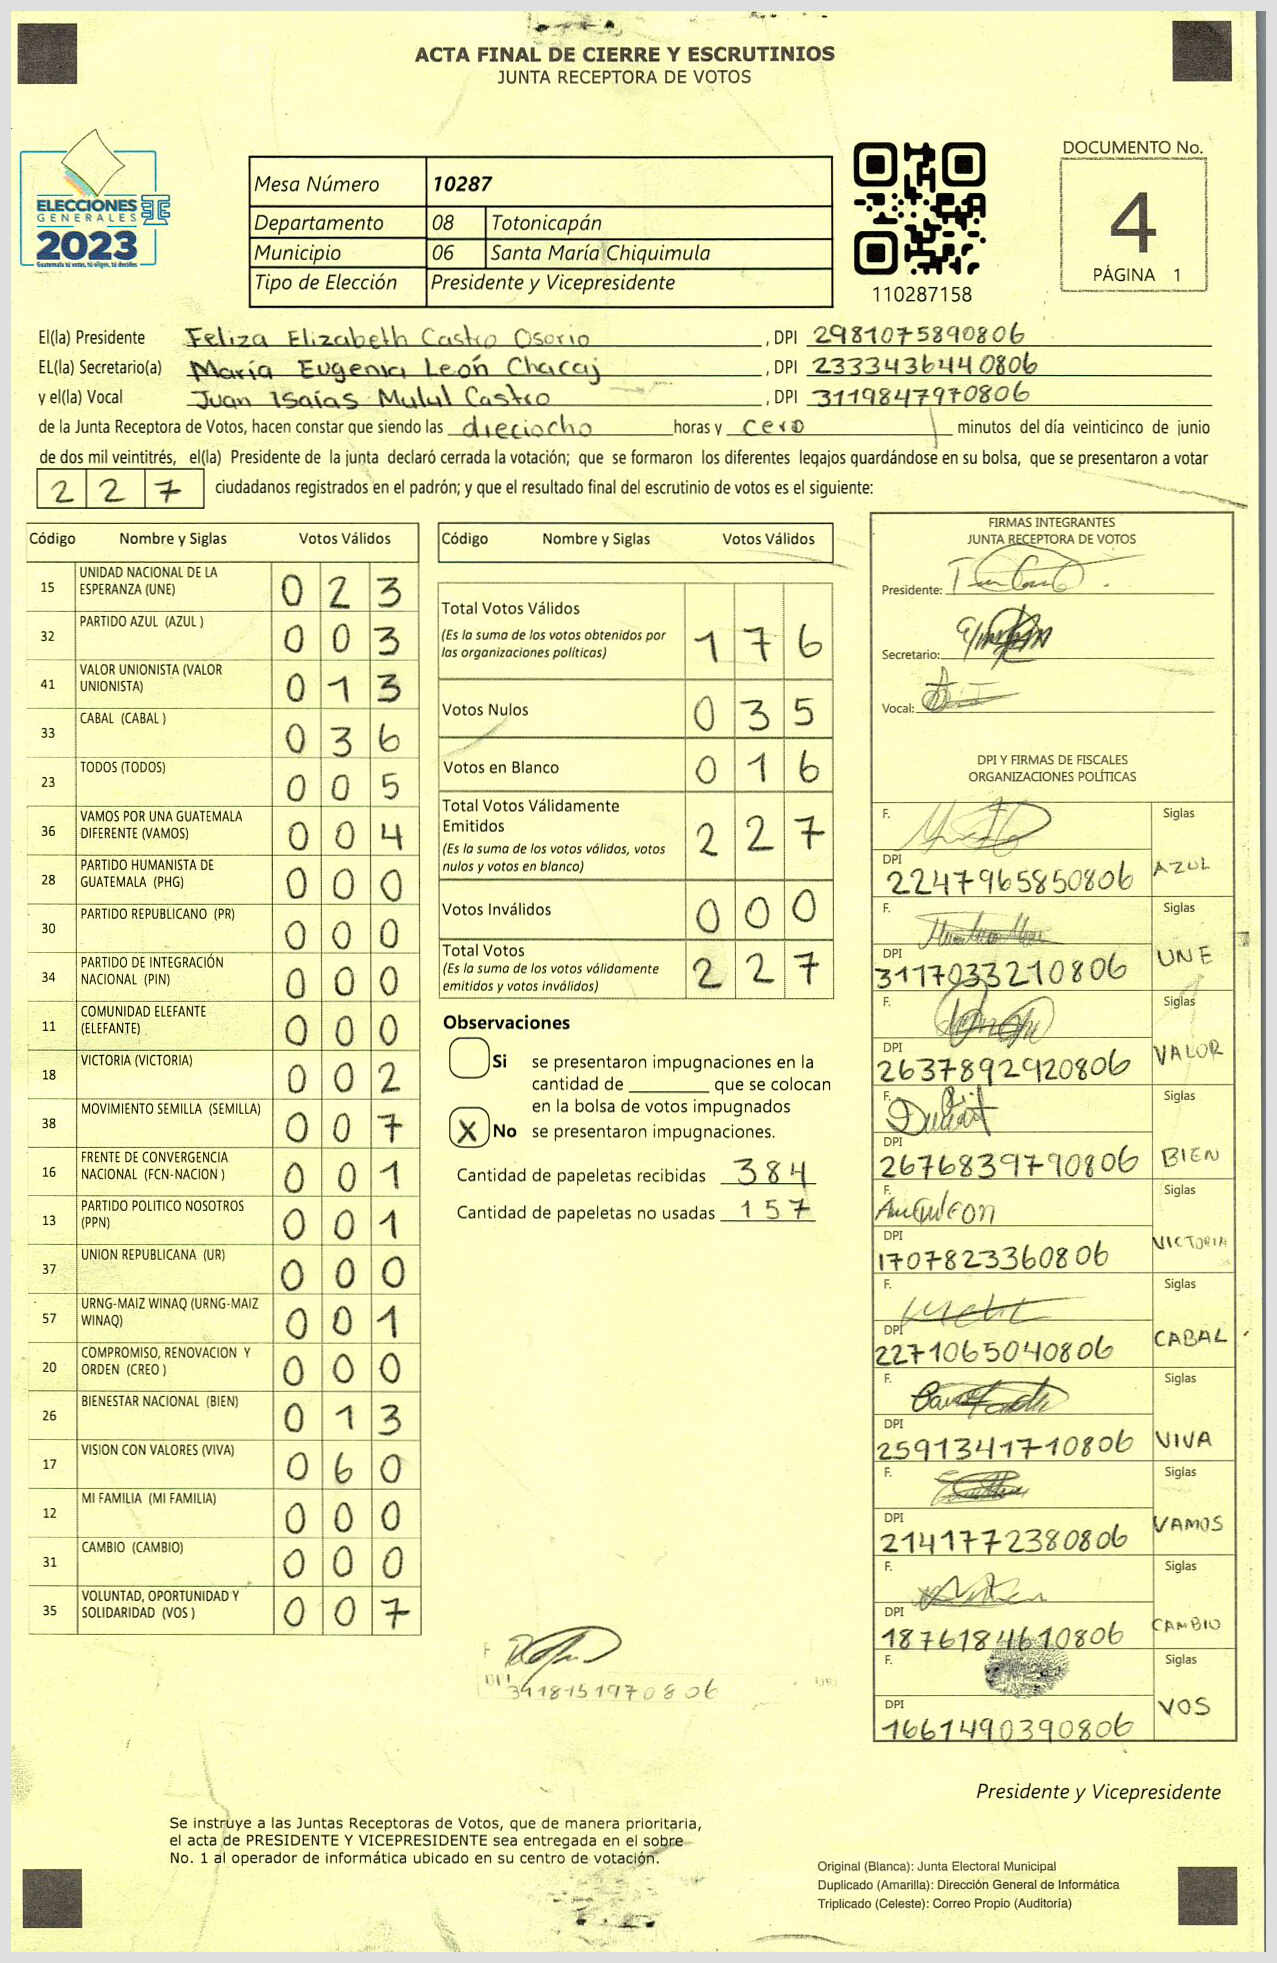 ACTA FINAL DE CIERRE Y ESCRUTINIOS
JUNTA RECEPTORA DE VOTOS
ELECCIONES
GENERALES
2023
Guatemala tú votas, tú eliges, tú decides
Mesa Número 10287
Departamento 08 Totonicapán
Municipio 06 Santa María Chiquimula
Tipo de Elección Presidente y Vicepresidente
110287158
DOCUMENTO No.
4
PÁGINA 1
El(la) Presidente Feliza Elizabeth Castro Osorio, DPI 2981075890806
EL(la) Secretario(a) María Eugenia León Chacaj, DPI 2333436440806
y el(la) Vocal Juan Isaías Mulul Castro, DPI 3119847970806
de la Junta Receptora de Votos, hacen constar que siendo las dieciocho horas y cero minutos del día veinticinco de junio
de dos mil veintitrés, el(la) Presidente de la junta declaró cerrada la votación; que se formaron los diferentes legajos quardándose en su bolsa, que se presentaron a votar
2 2 7 ciudadanos registrados en el padrón; y que el resultado final del escrutinio de votos es el siguiente:
Código Nombre y Siglas Votos Válidos
15 UNIDAD NACIONAL DE LA ESPERANZA (UNE) 0 2 3
32 PARTIDO AZUL (AZUL ) 0 0 3
41 VALOR UNIONISTA (VALOR UNIONISTA) 0 1 3
33 CABAL (CABAL ) 0 3 6
23 TODOS (TODOS) 0 0 5
36 VAMOS POR UNA GUATEMALA DIFERENTE (VAMOS) 0 0 4
28 PARTIDO HUMANISTA DE GUATEMALA (PHG) 0 0 0
30 PARTIDO REPUBLICANO (PR) 0 0 0
34 PARTIDO DE INTEGRACIÓN NACIONAL (PIN) 0 0 0
11 COMUNIDAD ELEFANTE (ELEFANTE) 0 0 0
18 VICTORIA (VICTORIA) 0 0 2
38 MOVIMIENTO SEMILLA (SEMILLA) 0 0 7
16 FRENTE DE CONVERGENCIA NACIONAL (FCN-NACION ) 0 0 1
13 PARTIDO POLITICO NOSOTROS (PPN) 0 0 1
37 UNION REPUBLICANA (UR) 0 0 0
57 URNG-MAIZ WINAQ (URNG-MAIZ WINAQ) 0 0 1
20 COMPROMISO, RENOVACION Y ORDEN (CREO ) 0 0 0
26 BIENESTAR NACIONAL (BIEN) 0 1 3
17 VISION CON VALORES (VIVA) 0 6 0
12 MI FAMILIA (MI FAMILIA) 0 0 0
31 CAMBIO (CAMBIO) 0 0 0
35 VOLUNTAD, OPORTUNIDAD Y SOLIDARIDAD (VOS ) 0 0 7
Código Nombre y Siglas Votos Válidos
Total Votos Válidos
(Es la suma de los votos obtenidos por
las organizaciones políticas) 1 7 6
Votos Nulos 0 3 5
Votos en Blanco 0 1 6
Total Votos Válidamente
Emitidos
(Es la suma de los votos válidos, votos
nulos y votos en blanco) 2 2 7
Votos Inválidos 0 0 0
Total Votos
(Es la suma de los votos válidamente
emitidos y votos inválidos) 2 2 7
Observaciones
Si se presentaron impugnaciones en la
cantidad de ________ que se colocan
en la bolsa de votos impugnados
X No se presentaron impugnaciones.
Cantidad de papeletas recibidas 384
Cantidad de papeletas no usadas 157
FIRMAS INTEGRANTES
JUNTA RECEPTORA DE VOTOS
Presidente:
Secretario:
Vocal:
DPI Y FIRMAS DE FISCALES
ORGANIZACIONES POLÍTICAS
F. Siglas
DPI 2247965850806 AZUL
F. Siglas
DPI 3117033210806 UNE
F. Siglas
DPI 2637892920806 VALOR
F. Siglas
DPI 2676839790806 BIEN
F. Siglas
DPI 1707823360806 VICTORIA
F. Siglas
DPI 2271065040806 CABAL
F. Siglas
DPI 2591341710806 VIVA
F. Siglas
DPI 2141772380806 VAMOS
F. Siglas
DPI 1876184610806 CAMBIO
F. Siglas
DPI 1661490390806 VOS
Presidente y Vicepresidente
Se instruye a las Juntas Receptoras de Votos, que de manera prioritaria,
el acta de PRESIDENTE Y VICEPRESIDENTE sea entregada en el sobre
No. 1 al operador de informática ubicado en su centro de votación.
Original (Blanca): Junta Electoral Municipal
Duplicado (Amarilla): Dirección General de Informática
Triplicado (Celeste): Correo Propio (Auditoría)